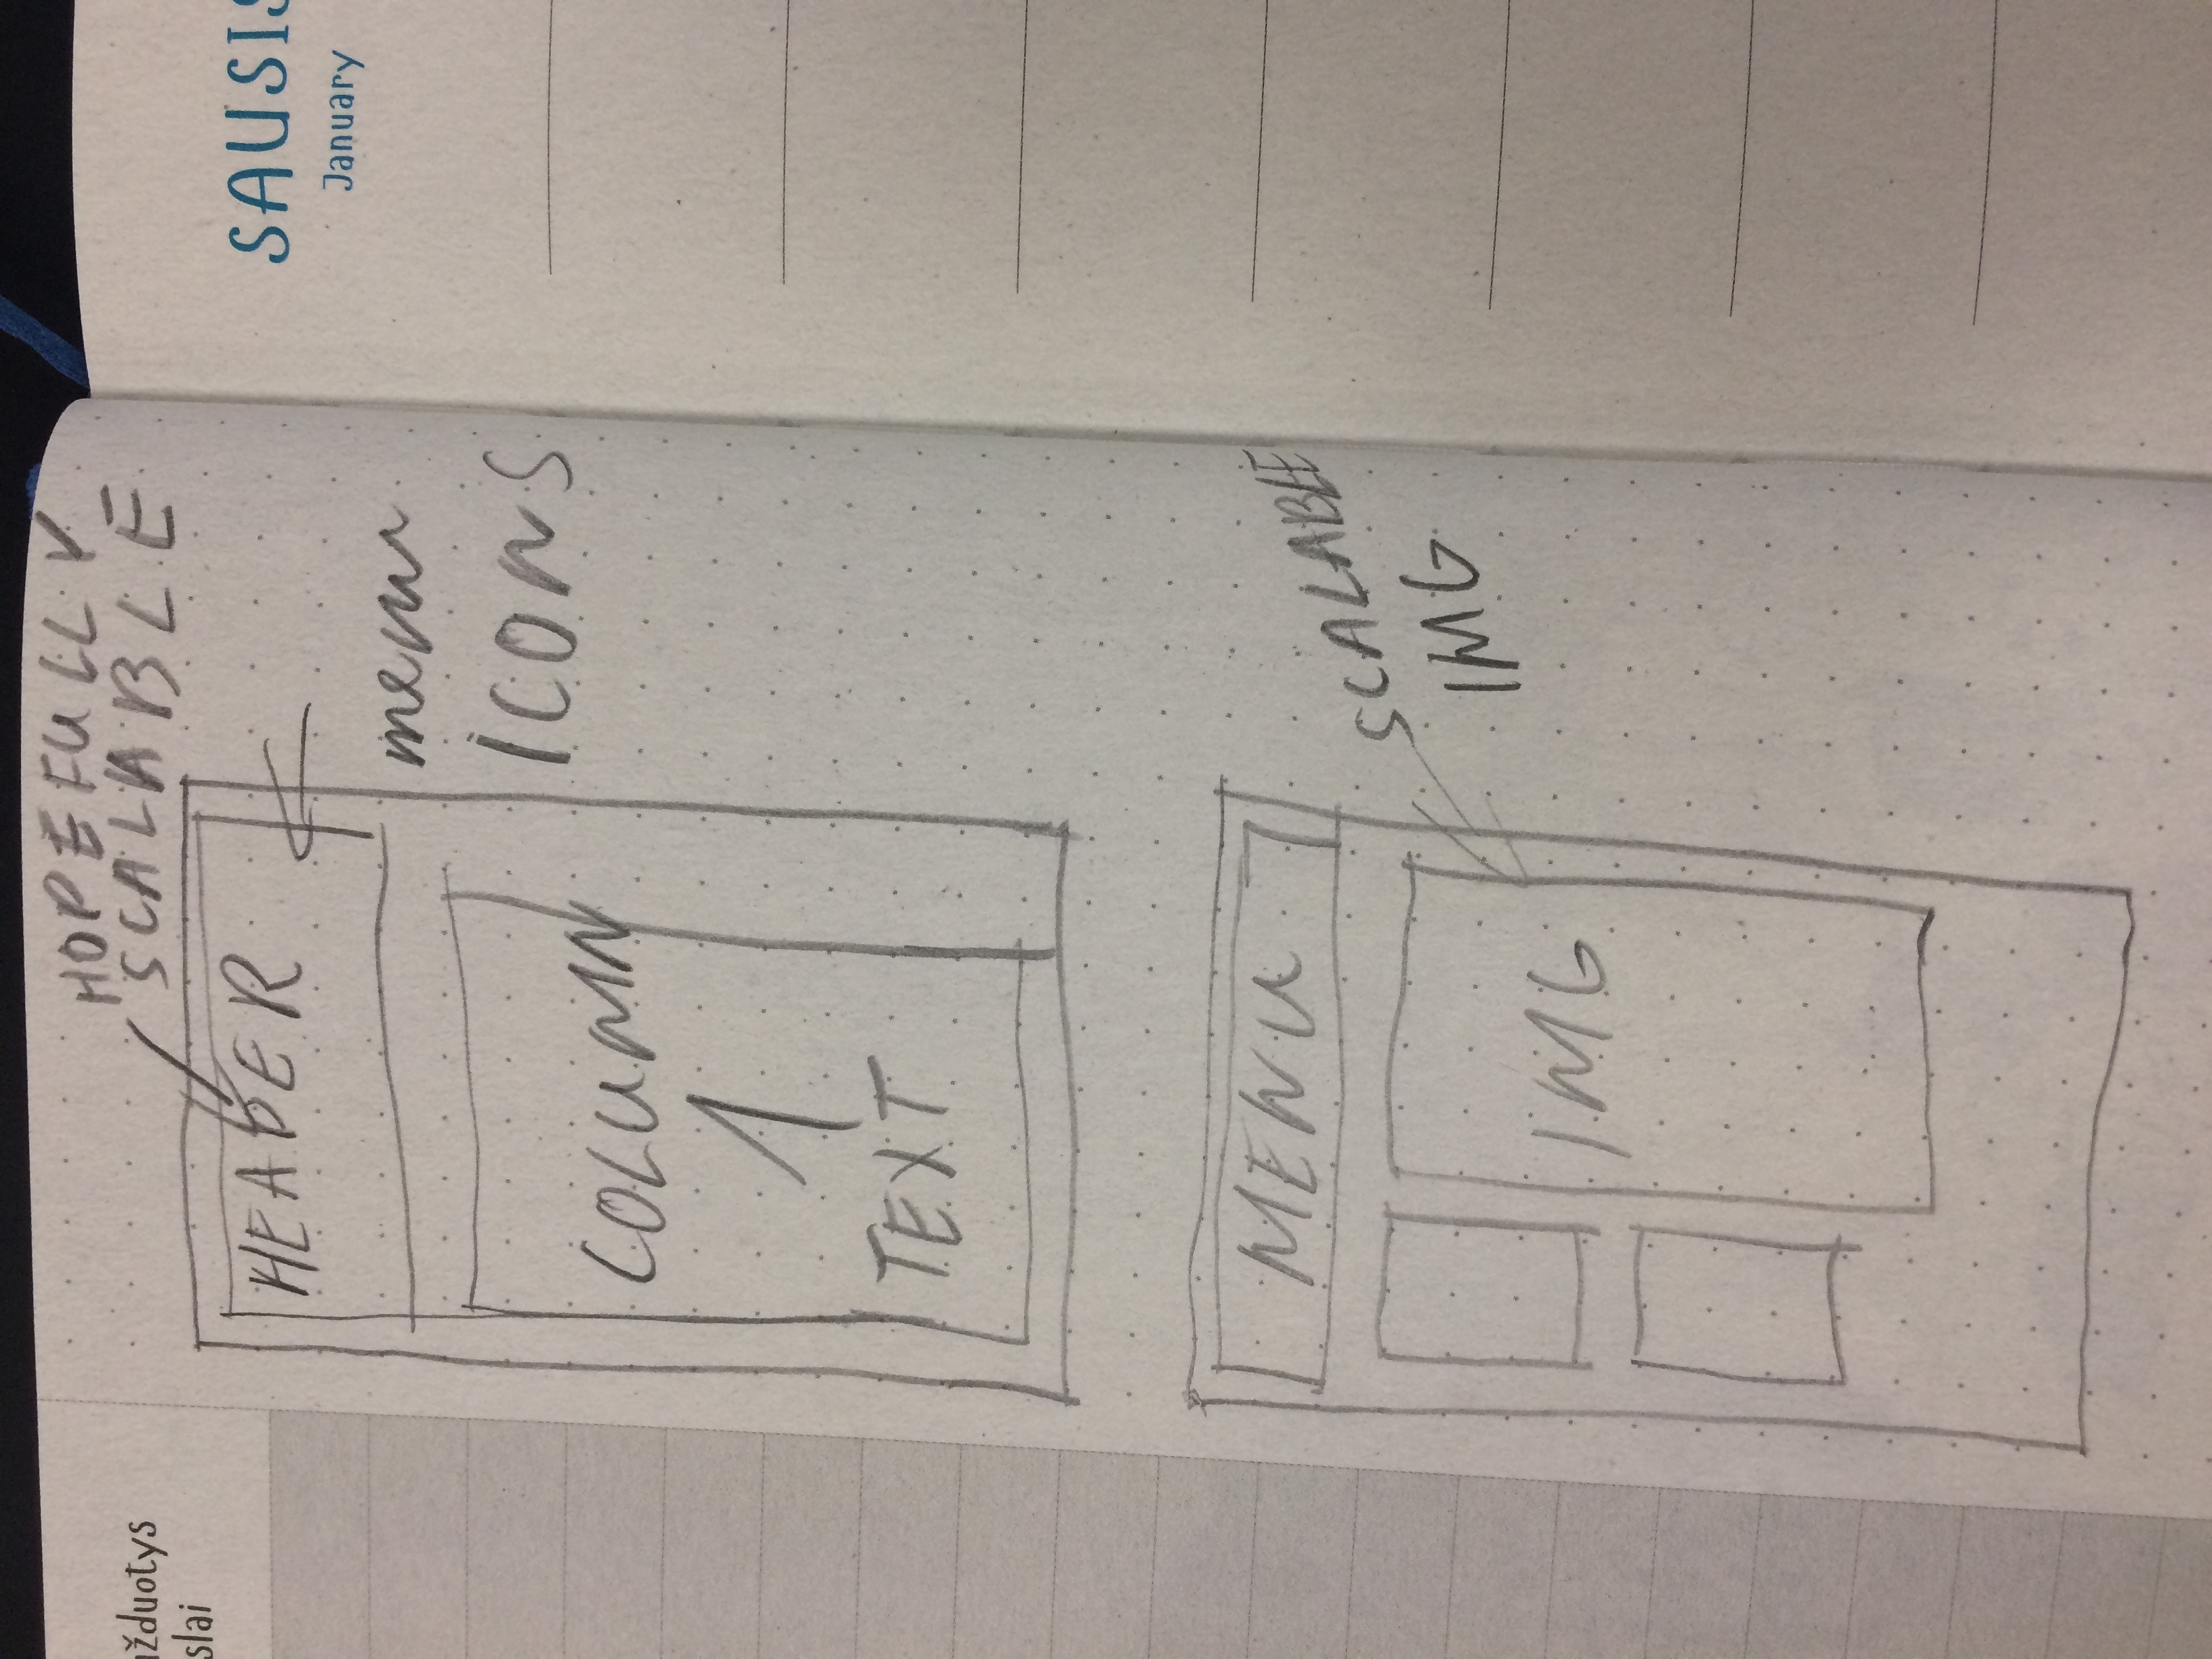 HOPEFULLY
SCALABLE
HEADER
menu
ICONS
COLUMN
1
TEXT
MENU
SCALABLE
IMG
IMG
January